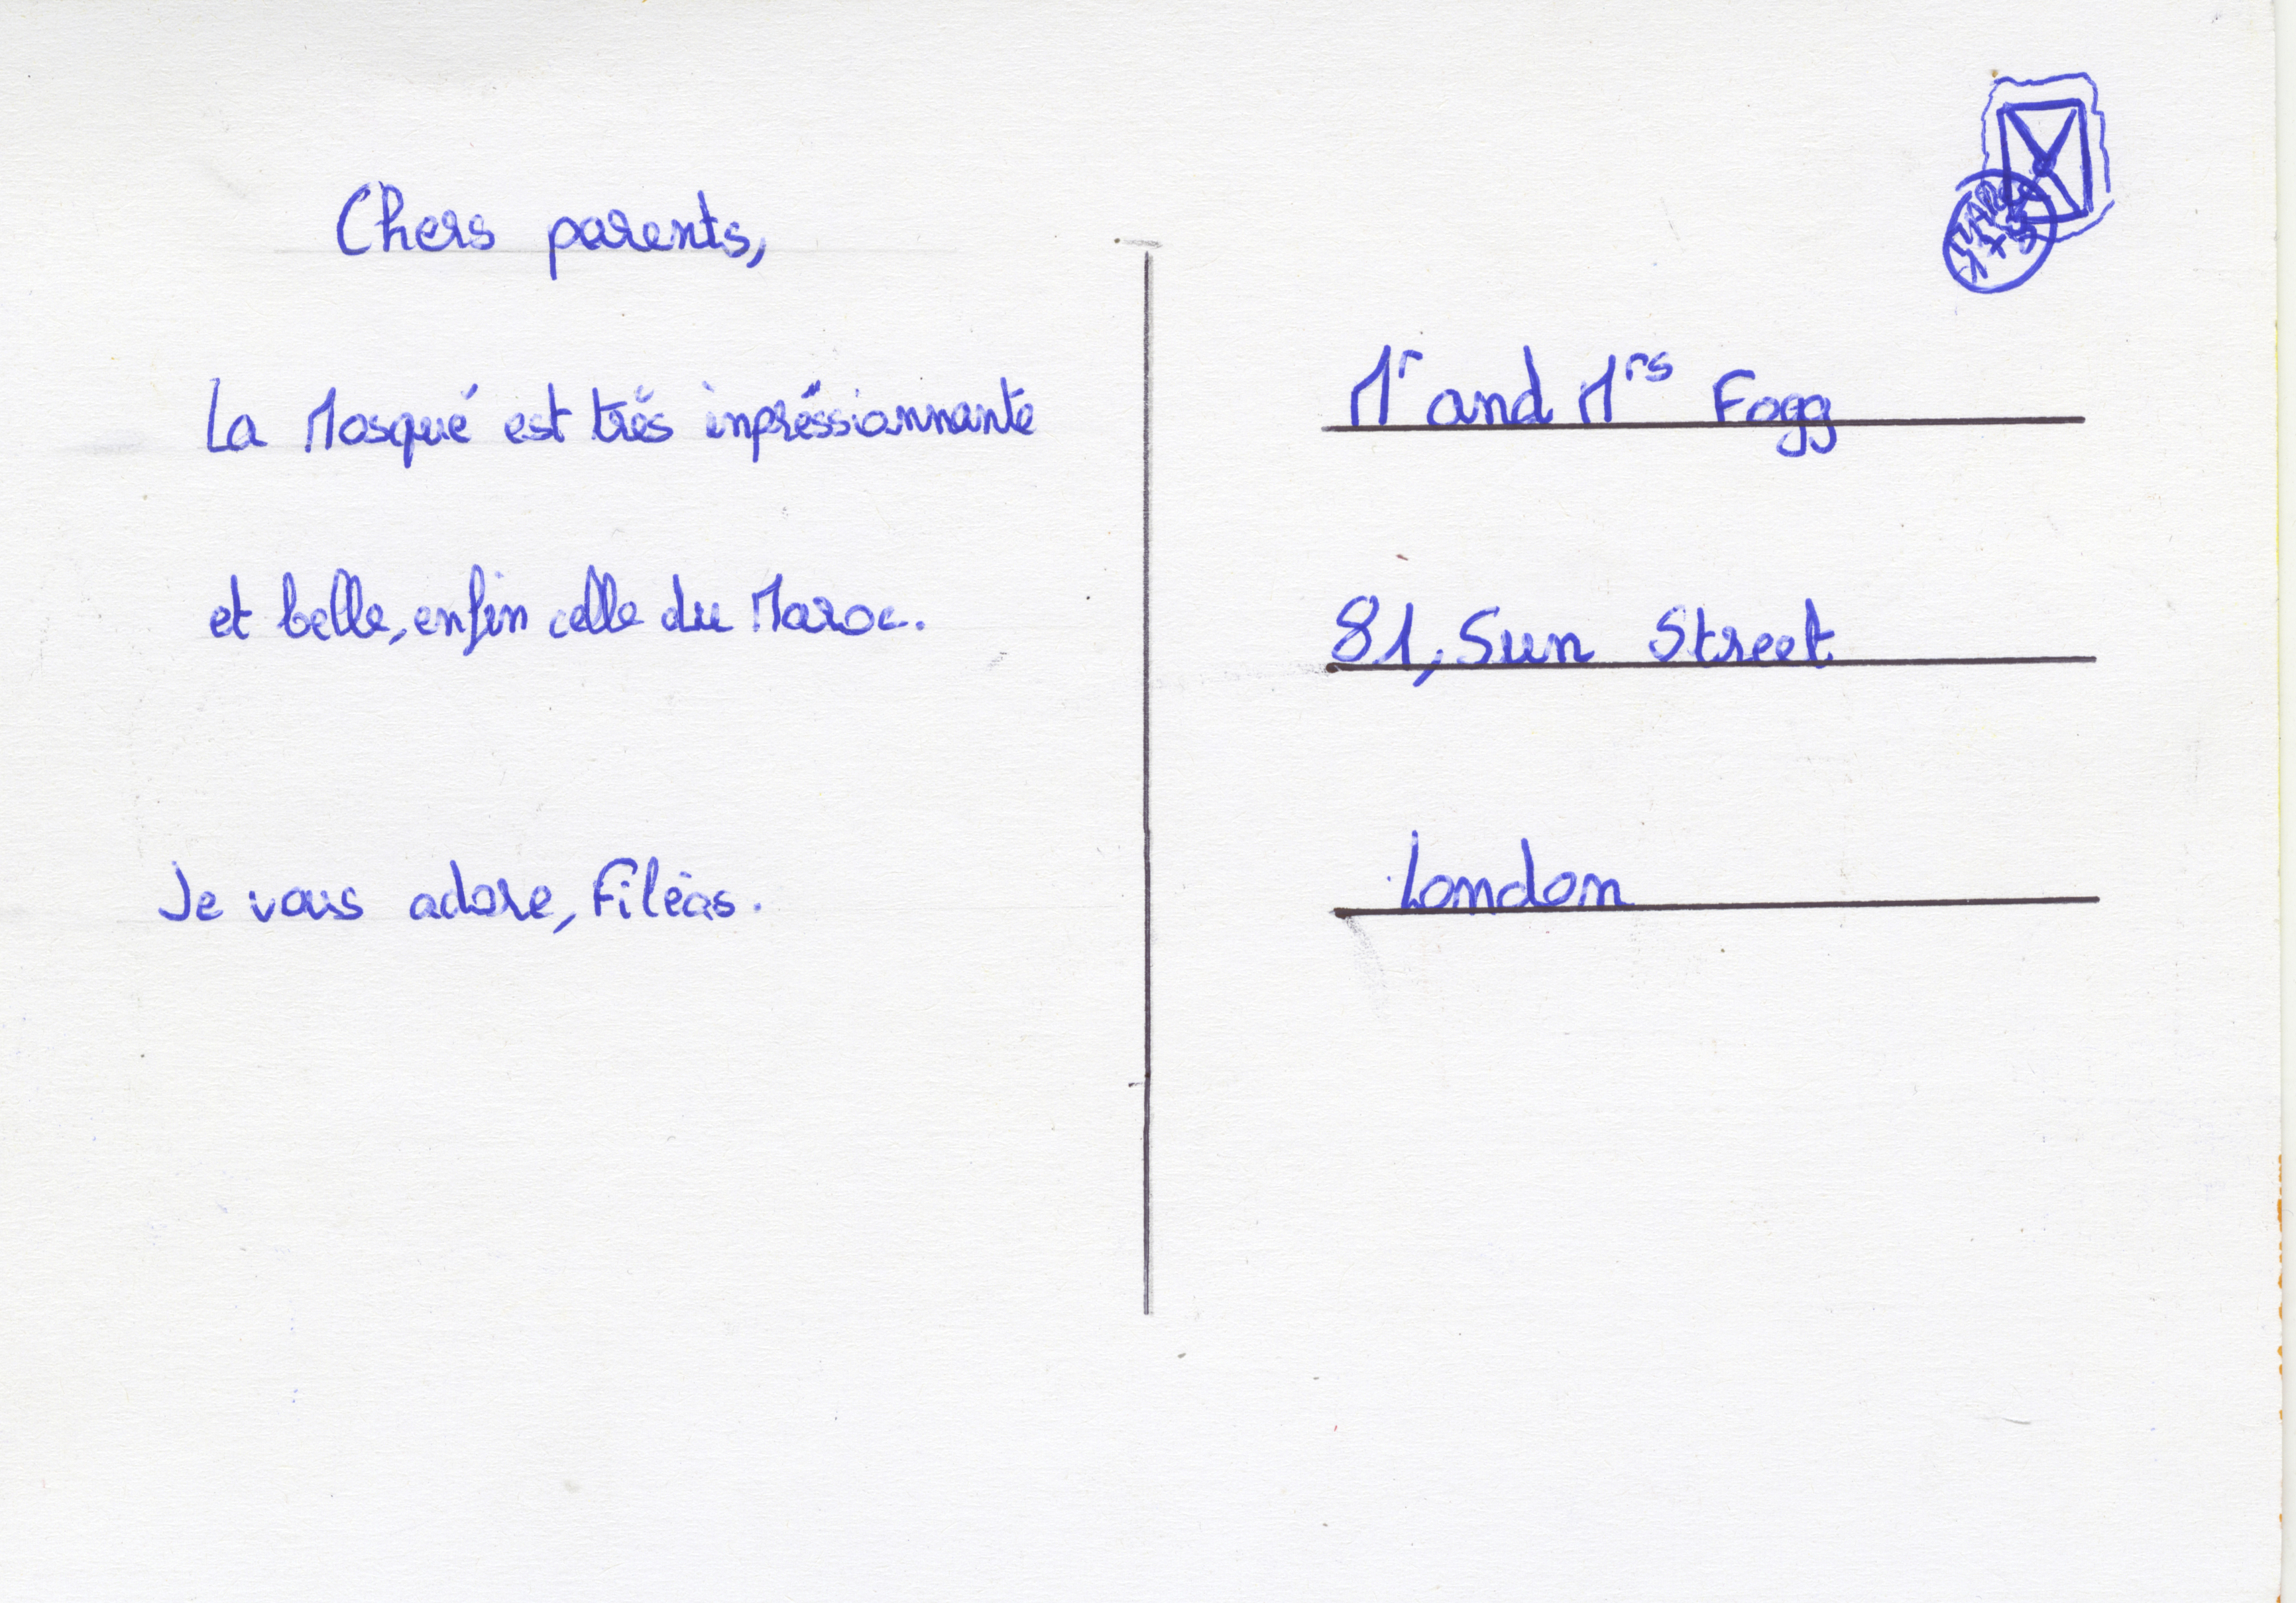 Chers parents,
La Mosqué est trés inpréssionnante
et belle, enfin celle du Maroc.
Je vous adore, Filéas.
Mr and Mrs Fogg
81, Sun Street
London